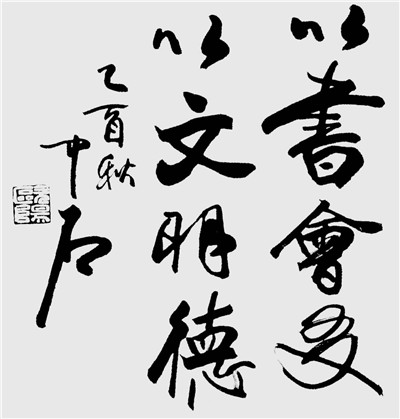 以書會友
以文明德
乙酉秋
中石